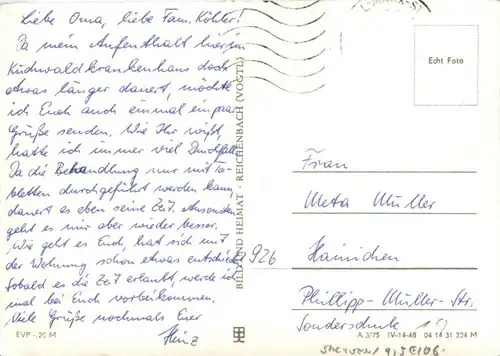 Liebe Oma, liebe Fam. Köhler!
Da mein Aufenthalt hier im
Küchwaldkrankenhaus doch
etwas länger dauert, möchte
ich Euch auch einmal ein paar
Grüße senden. Wie Ihr wißt,
hatte ich immer viel Durchfall.
Da die Behandlung nur mit Ta-
bletten durchgeführt werden kann,
dauert es eben seine Zeit. Ansonsten
geht es mir aber wieder besser.
Wie geht es Euch, hat sich mit
der Wohnung schon etwas entschieden
Sobald es die Zeit erlaubt, werde ich
mal bei Euch vorbeikommen.
Viele Grüße nochmals Euer
Heinz
EVP -,20 M
BILD UND HEIMAT · REICHENBACH (VOGTL)
Echt Foto
Frau
Meta Müller
926 Hainichen
Phillipp-Müller-Str.
Sonderschule
A 3/75 IV-14-48 04 14 31 324 M